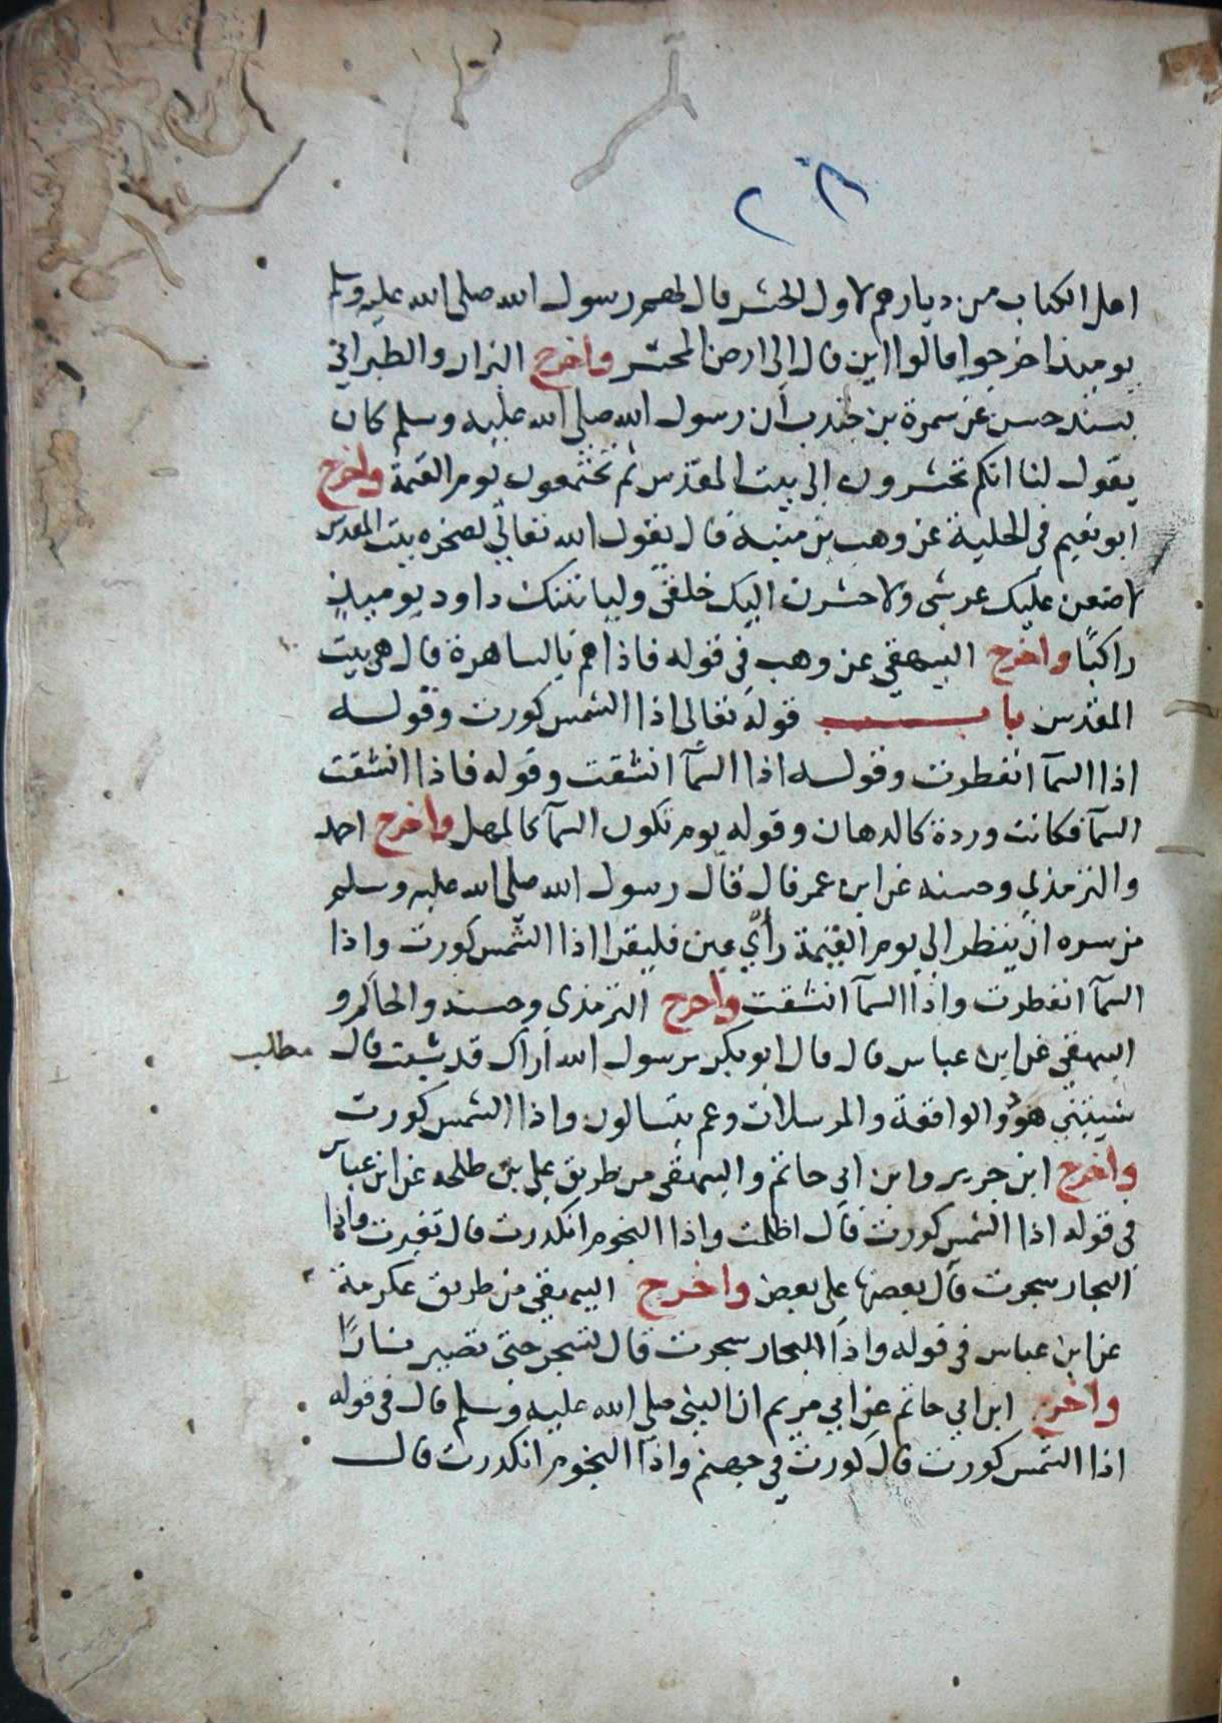 اهل الكتاب من ديارهم لاول الحشر قال لهم رسول الله صلى الله عليه وسلم
يوميذ اخرجوا قالوا الى اين قال الى ارض المحشر واخرج البزار والطبراني
بسند حسن عن سمرة بن جندب ان رسول الله صلى الله عليه وسلم كان
يقول لنا انكم تحشرون الى بيت المقدس ثم تجتمعون يوم القيمة واخرج
ابو نعيم فى الحلية عن وهب بن منبه قال يقول الله تعالى لصخره بيت المقدس
لاضعن عليك عرشى ولاحشرن اليك خلقى ولياتينك داود يوميذ
راكبًا واخرج البيهقى عن وهب فى قوله فاذا هم بالساهرة قال هى بيت
المقدس باب قوله تعالى اذا الشمس كورت وقوله
اذا السمآ انفطرت وقوله اذا السمآ انشقت وقوله فاذا انشقت
السمآ فكانت وردة كالدهان وقوله يوم تكون السمآ كالمهل واخرج احمد
والترمذى وحسنه عن ابن عمر قال قال رسول الله صلى الله عليه وسلم
من سره ان ينظر الى يوم القيمة رأي عين فليقرا اذا الشمس كورت واذا
السمآ انفطرت واذا السمآ انشقت واخرج الترمذى وحسنه والحاكم و
البيهقى عن ابن عباس قال قال ابو بكر يرسول الله اراك قد شبت قال
مطالب
شيبتني هود والواقعة والمرسلات وعم يتسالون واذا الشمس كورت
واخرج ابن جرير وابن ابي حاتم والبيهقى من طريق على بن طلحه عن ابن عباس
فى قوله اذا الشمس كورت قال اظلمت واذا النجوم انكدرت قال تغيرت واذا
البحار سجرت قال بعضها على بعض واخرج البيهقى من طريق عكرمة
عن ابن عباس فى قوله واذا البحار سجرت قال تسجر حتى تصير نارًا
واخرج ابن ابي حاتم عن ابي مريم ان النبى صلى الله عليه وسلم قال فى قوله
اذا الشمس كورت قال كورت في جهنم واذا النجوم انكدرت قال